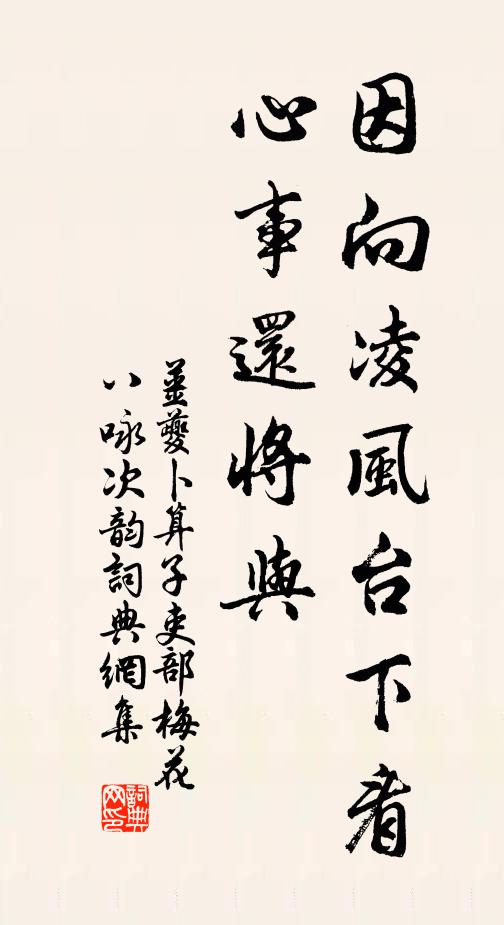 因向凌風台下看
心事還將與
姜夔卜算子吏部梅花
八咏次韵詞典網集
詞典网印